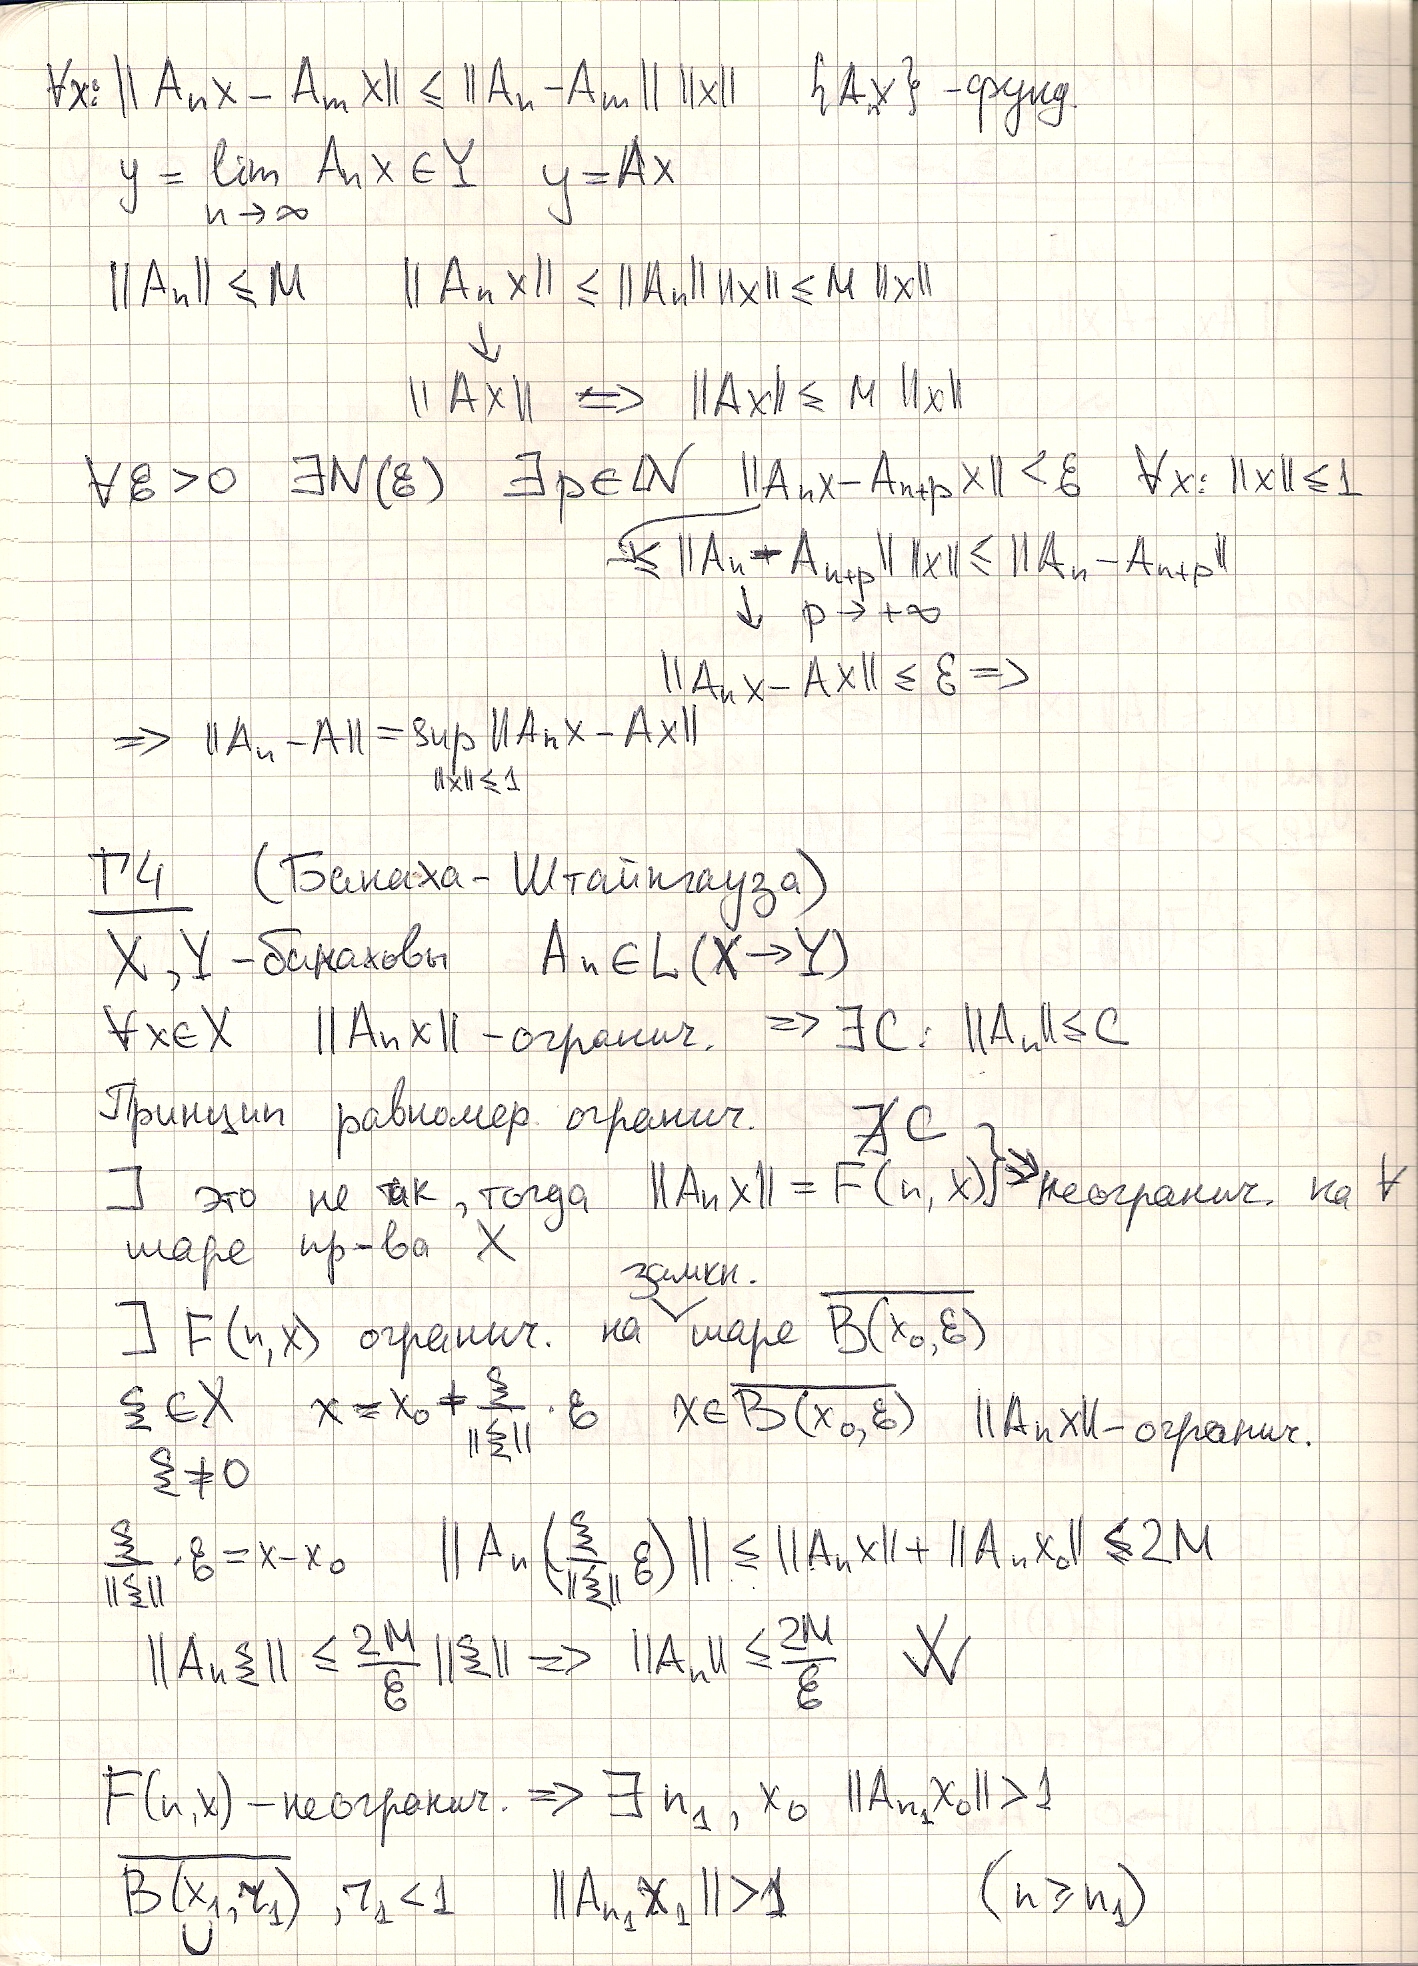 ∀x: ||Aₙx − Aₘx|| ≤ ||Aₙ − Aₘ|| ||x||   {Aₙx} - фунд.
y = lim Aₙx ∈ Y   y = Ax
n→∞
||Aₙ|| ≤ M   ||Aₙx|| ≤ ||Aₙ|| ||x|| ≤ M ||x||
↓
||Ax|| ⇒ ||Ax|| ≤ M ||x||
∀ε > 0   ∃N(ε)   ∃p∈ℕ   ||Aₙx − Aₙ₊ₚx|| < ε   ∀x: ||x|| ≤ 1
≤ ||Aₙ − Aₙ₊ₚ|| ||x|| ≤ ||Aₙ − Aₙ₊ₚ||
↓ p → +∞
||Aₙx − Ax|| ≤ ε ⇒
⇒ ||Aₙ − A|| = sup ||Aₙx − Ax||
||x|| ≤ 1
Т4   (Банаха-Штайнгауза)
X, Y - банаховы   Aₙ ∈ L(X→Y)
∀x∈X   ||Aₙx|| - огранич. ⇒ ∃C: ||Aₙ|| ≤ C
Принцип равномер. огранич.   ∄ C
] это не так, тогда ||Aₙx|| = F(n, x)} ⇒ неогранич. на ∀
шаре пр-ва X
замкн.
] F(n,x) огранич. на шаре B̅(x₀,ε)
ξ ∈ X   x = x₀ + ξ/||ξ|| · ε   x ∈ B̅(x₀,ε)   ||Aₙx|| - огранич.
ξ ≠ 0
ξ/||ξ|| · ε = x − x₀   ||Aₙ(ξ/||ξ|| ε)|| ≤ ||Aₙx|| + ||Aₙx₀|| ≤ 2M
||Aₙξ|| ≤ 2M/ε ||ξ|| ⇒ ||Aₙ|| ≤ 2M/ε
F(n,x) - неогранич. ⇒ ∃ n₁, x₀   ||Aₙ₁x₀|| > 1
B̅(x₁, r₁), r₁ < 1   ||Aₙ₁x₁|| > 1   (n ≥ n₁)
∪